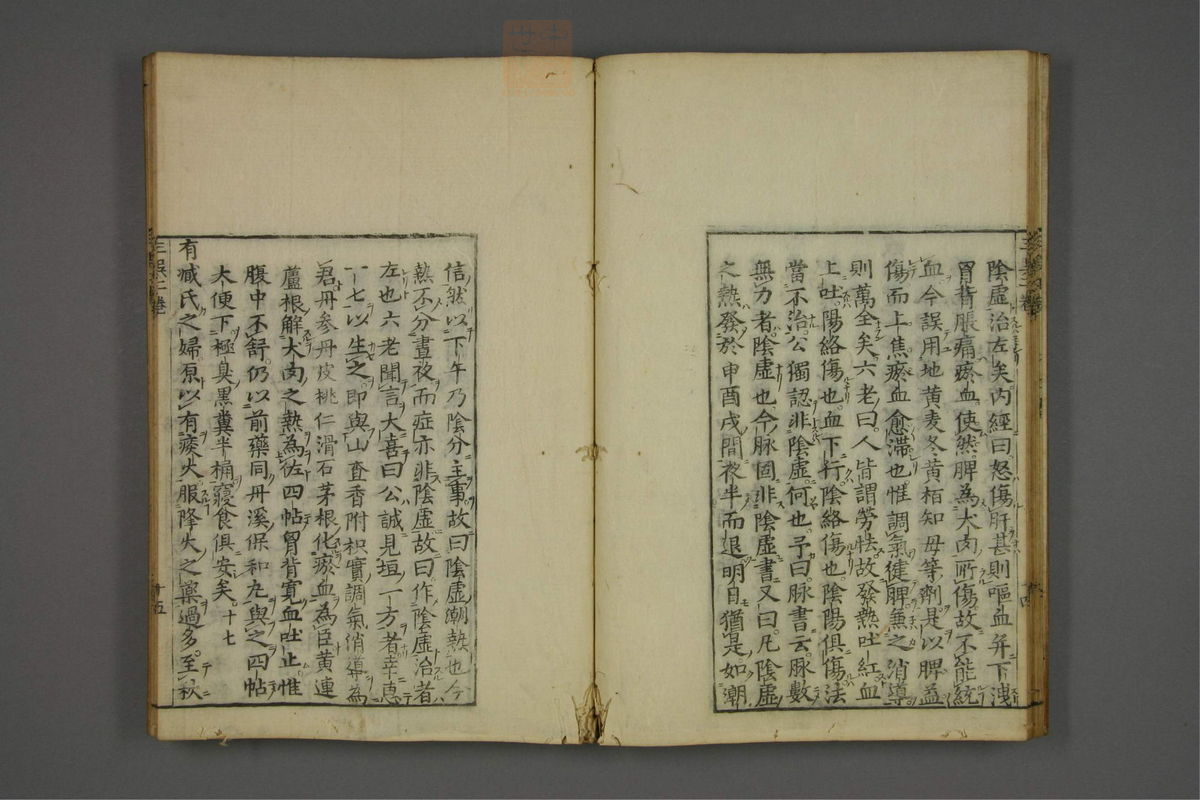 陰虛治左矣內經曰怒傷肝甚則嘔血并下洩
胃背脹痛瘀血使然脾為犬肉所傷故不能統
血今誤用地黄麦冬黄栢知母等劑是以脾益
傷而上焦瘀血愈滯也惟調氣健脾兼之消導
則萬全矣六老曰人皆謂勞怯故發熱吐紅血
上吐陽絡傷也血下行陰絡傷也陰陽俱傷法
當不治公獨認非陰虛何也予曰脉書云脉數
無力者陰虛也今脉固非陰虛書又曰凡陰虛
之熱發於申酉戌間夜半而退明日猶是如潮
信然以下午乃陰分主事故曰陰虛潮熱也今
熱不分晝夜而症亦非陰虛故曰作陰虛治者
左也六老聞言大喜曰公誠見垣一方者幸惠
一七以生之即與山查香附枳實調氣消導為
君丹参丹皮桃仁滑石茅根化瘀血為臣黄連
蘆根解犬肉之熱為佐四帖胃背寬血吐止惟
腹中不舒仍以前藥同丹溪保和丸與之四帖
大便下極臭黒糞半桶寢食俱安矣 十七
有臧氏之婦原以有痰火服降火之藥過多至秋
十五